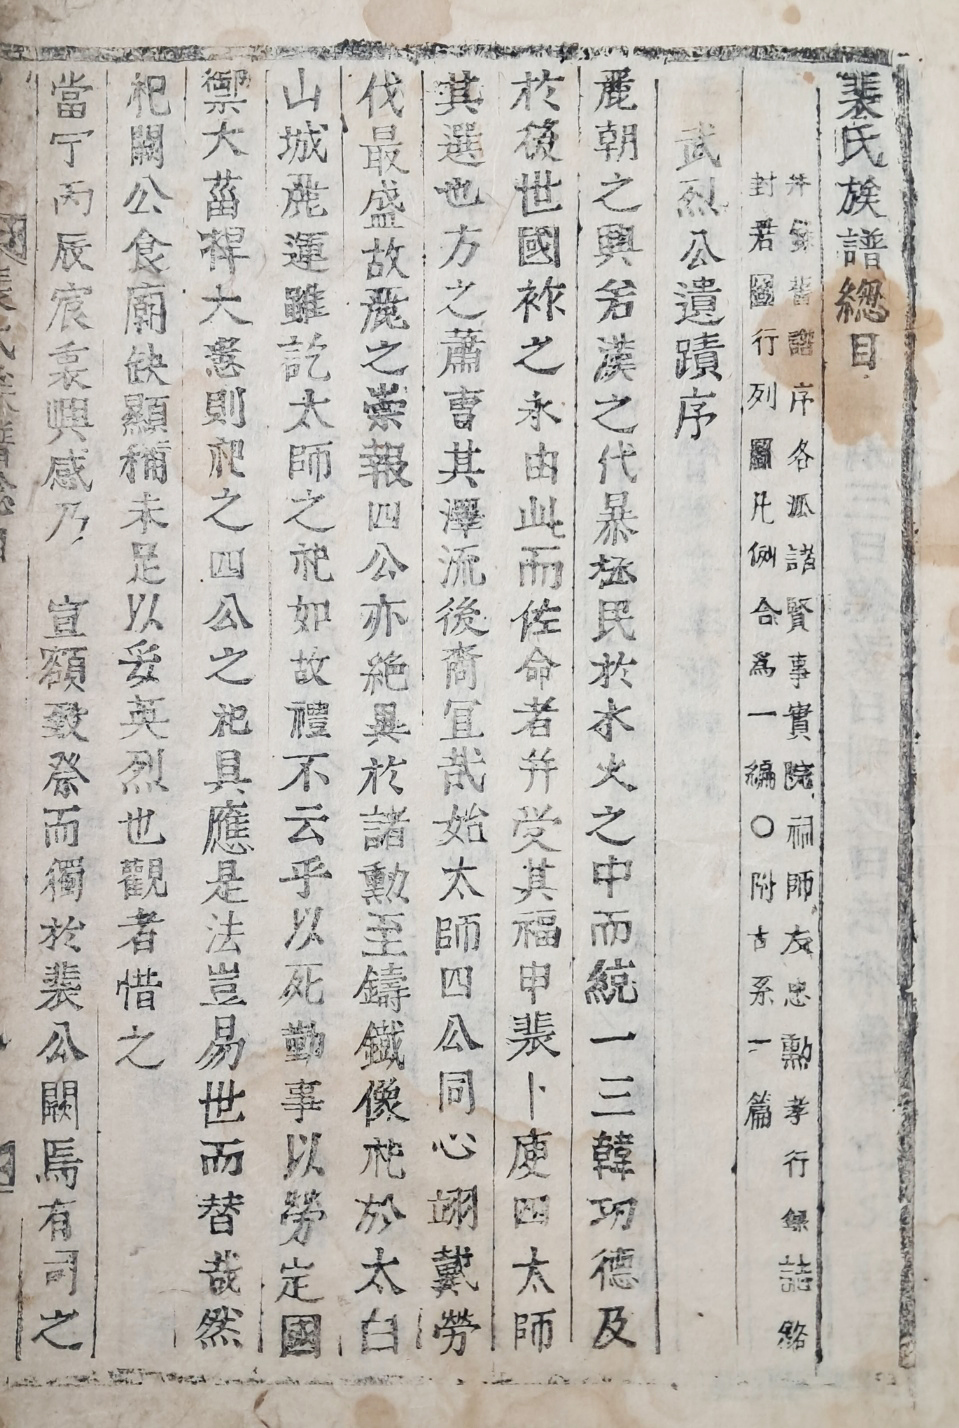 裴氏族譜總目
并錄舊譜序各派諸賢事實院祠師友忠勳孝行錄誌略
封君圖行列圖凡例合爲一編〇附古系一篇
武烈公遺蹟序
麗朝之興若漢之代暴拯民於水火之中而統一三韓功德及
於後世國祚之永由此而佐命者并受其福申裴卜庾四太師
其選也方之蕭曺其澤流後裔宜哉始太師四公同心翊戴勞
伐最盛故麗之崇報四公亦絶異於諸勳至鑄鐵像祀於太白
山城麗運雖訖太師之祀如故禮不云乎以死勤事以勞定國
禦大菑捍大患則祀之四公之祀具應是法豈易世而替哉然
祀闕公食廟缺顯稱未足以妥英烈也觀者惜之
當宁丙辰宸衷興感乃 宣額致祭而獨於裴公闕焉有司之